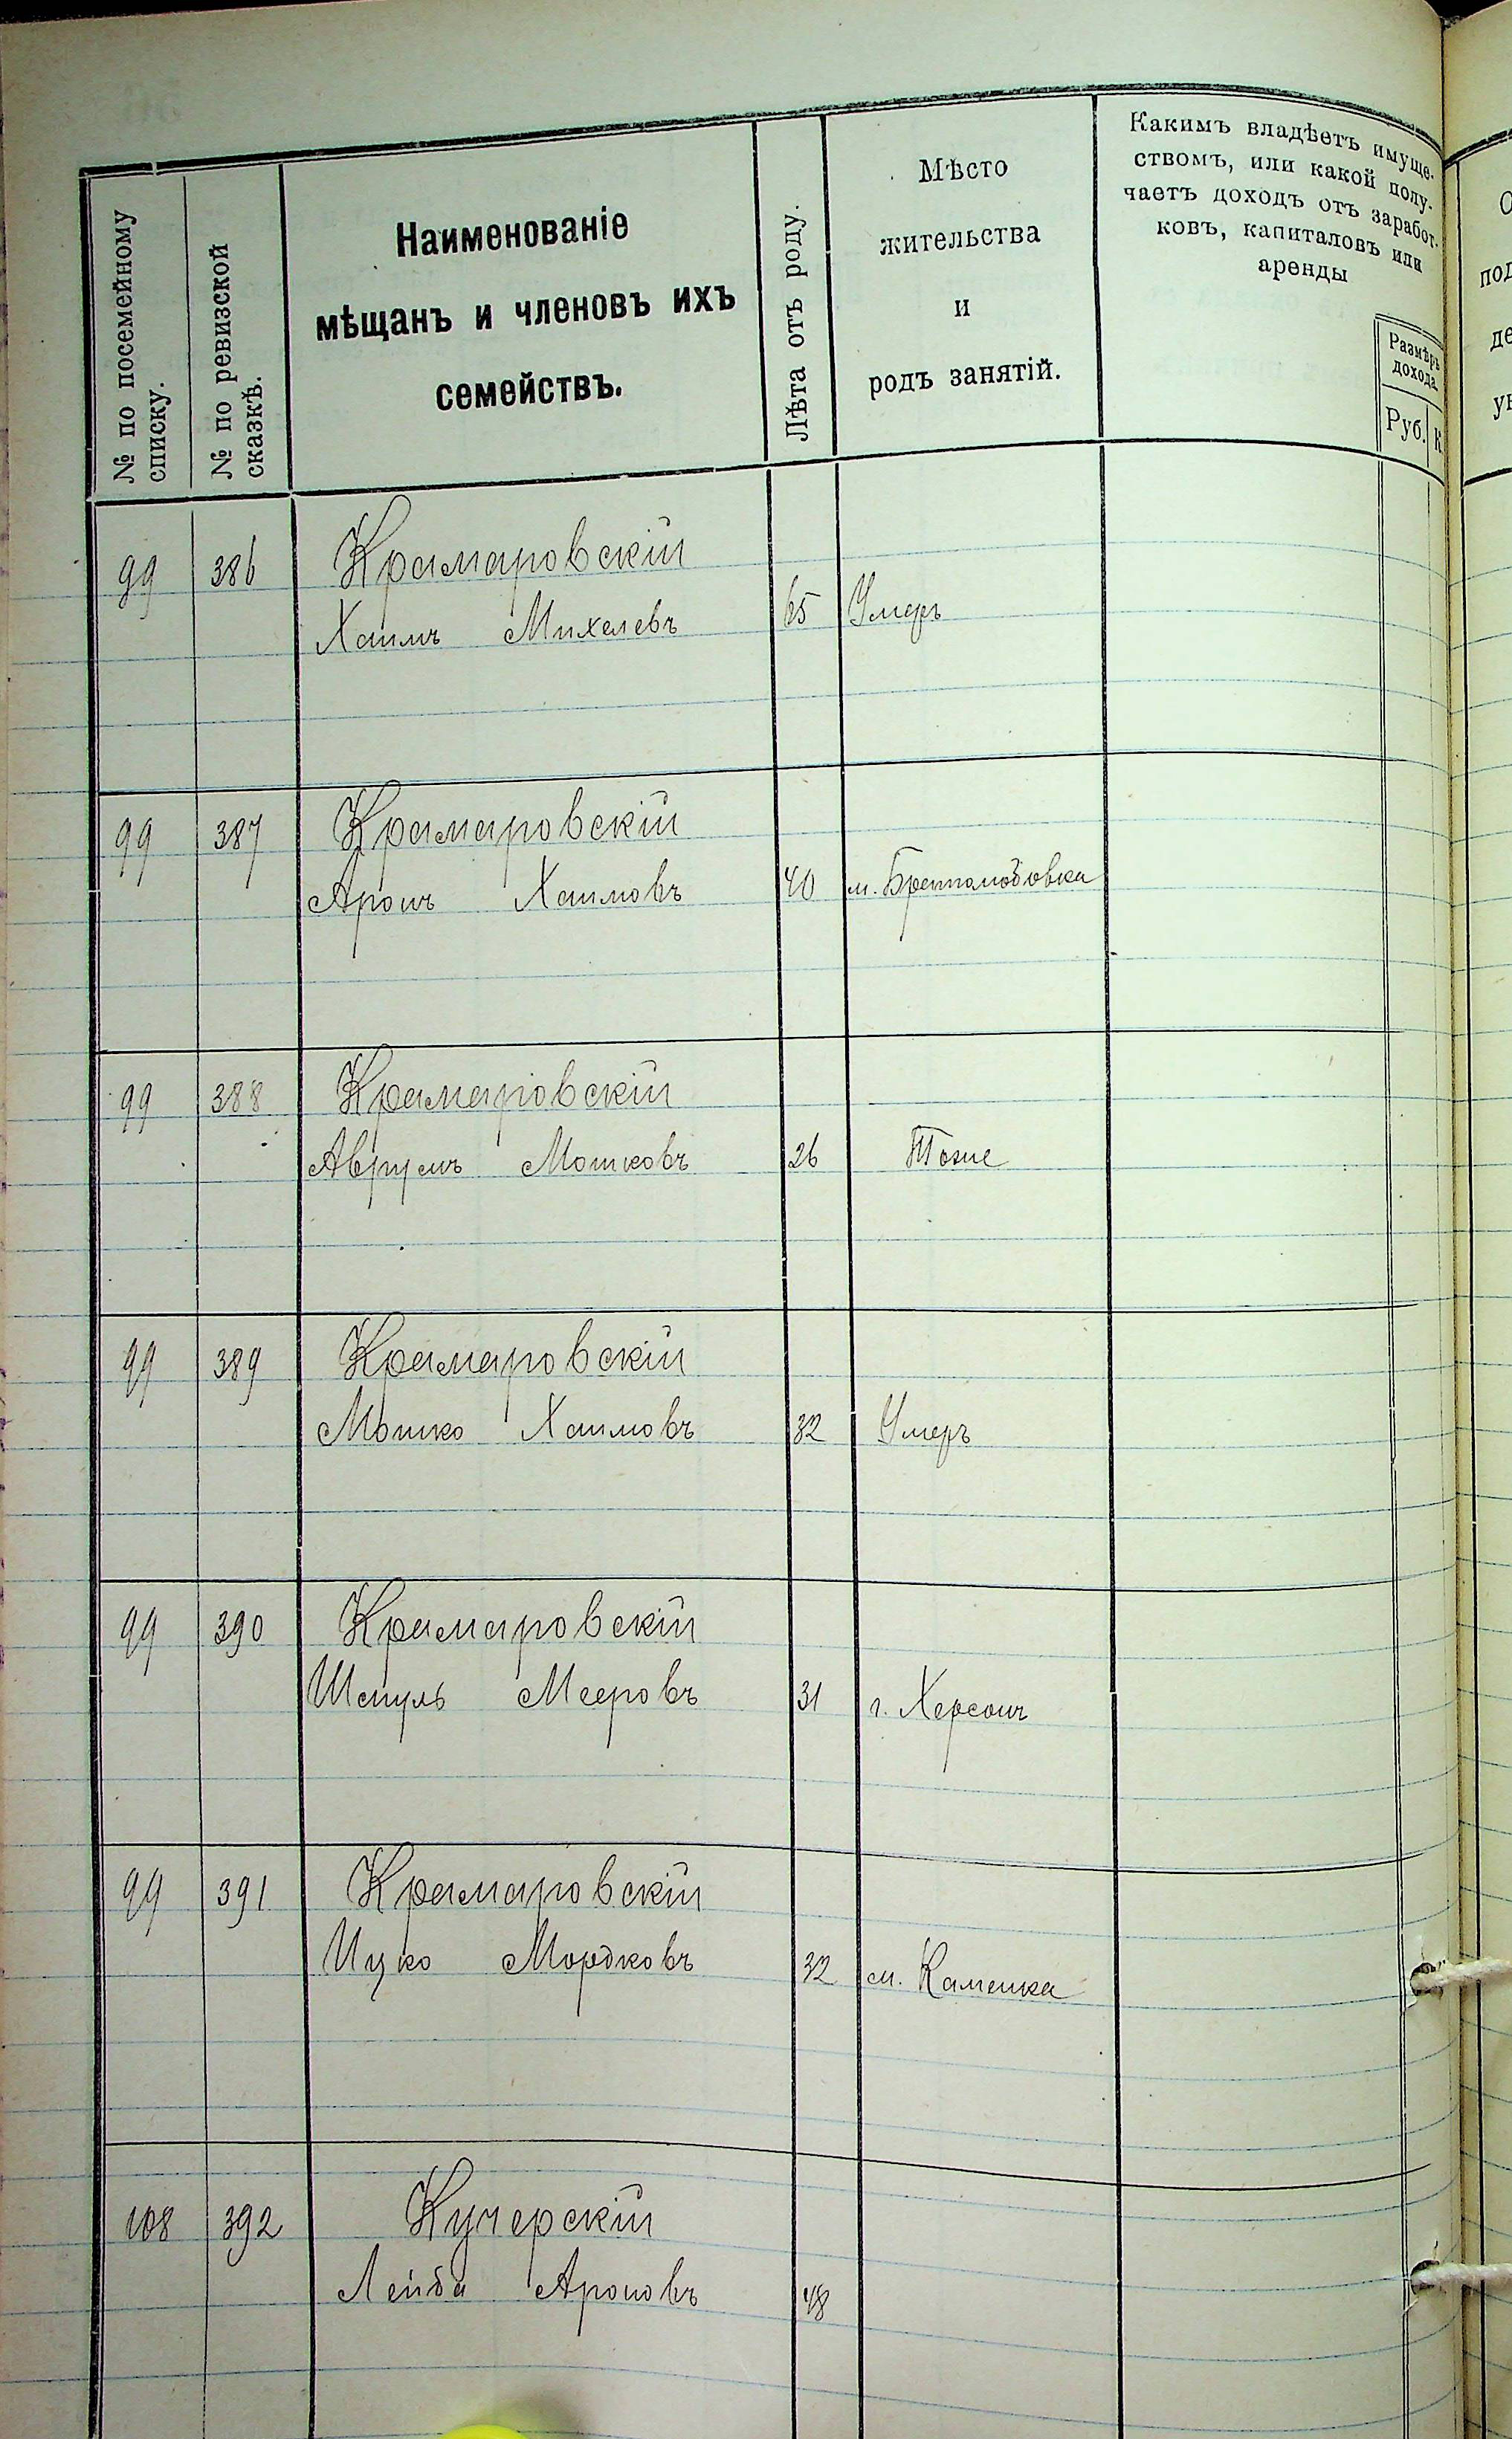 № по посемейному
списку.
№ по ревизской
сказкѣ.
Наименованіе
мѣщанъ и членовъ ихъ
семействъ.
Лѣта отъ роду.
Мѣсто
жительства
и
родъ занятій.
Какимъ владѣетъ имуще-
ствомъ, или какой полу-
чаетъ доходъ отъ заработ-
ковъ, капиталовъ или
аренды
Размѣръ
дохода.
Руб. К
99 386 Крамаровскій
Хаимъ Михелевъ 65 Умеръ
99 387 Крамаровскій
Аронъ Хаимовъ 40 м. Братолюбовка
99 388 Крамаровскій
Аврумъ Мошковъ 26 Тоже
99 389 Крамаровскій
Мошко Хаимовъ 32 Умеръ
99 390 Крамаровскій
Шмуль Мееровъ 31 г. Херсонъ
99 391 Крамаровскій
Ицко Мордковъ 32 м. Каменка
108 392 Кучерскій
Лейба Ароновъ 48